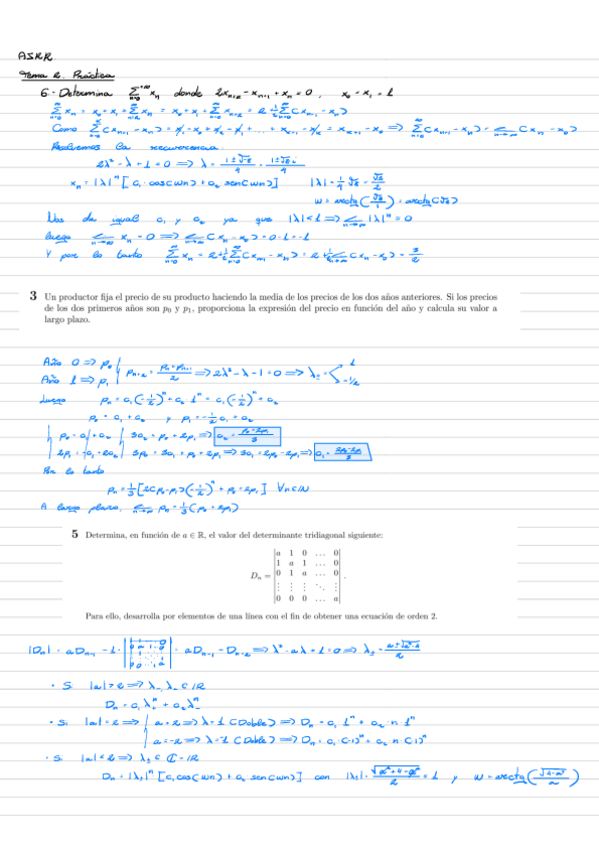 ASRR
Tema 2. Práctica
6- Determina \sum_{n=0}^{+\infty} x_n donde 2x_{n+2} - x_{n+1} + x_n = 0, x_0 = x_1 = 1
\sum_{n=0}^{\infty} x_n = x_0 + x_1 + \sum_{n=2}^{\infty} x_n = x_0 + x_1 + \sum_{n=0}^{\infty} x_{n+2} = 2 + \frac{1}{2} \sum_{n=0}^{\infty} (x_{n+1} - x_n)
Como \sum (x_{n+1} - x_n) = x_1 - x_0 + x_2 - x_1 + ... + x_{n+1} - x_n = x_{n+1} - x_0 => \sum_{n=0}^{\infty} (x_{n+1} - x_n) = (x_n - x_0)
Resolvemos la recurrencia
2λ² - λ + 1 = 0 => λ =
x_n = |λ|^n [c_1 cos(wn) + c_2 sen(wn)] |λ| =
Nos da igual c_1 y c_2 ya que |λ| < 1 => |λ|^n = 0
luego x_n = 0 => (x_n - x_0) = 0 - 1 = -1
Y por lo tanto \sum_{n=0}^{\infty} x_n = 2 + \frac{1}{2} \sum_{n=0}^{\infty} (x_{n+1} - x_n) = 2 + \frac{1}{2} (x_n - x_0) = \frac{3}{2}
3 Un productor fija el precio de su producto haciendo la media de los precios de los dos años anteriores. Si los precios
de los dos primeros años son p_0 y p_1, proporciona la expresión del precio en función del año y calcula su valor a
largo plazo.
Año 0 => p_0
Año 1 => p_1
p_{n+2} = \frac{p_n + p_{n+1}}{2} => 2λ² - λ - 1 = 0 => λ = 1, -1/2
Luego p_n = c_1 (-\frac{1}{2})^n + c_2 1^n = c_1 (-\frac{1}{2})^n + c_2
p_0 = c_1 + c_2 y p_1 = -\frac{1}{2} c_1 + c_2
Por lo tanto
p_n = \frac{1}{3} [2(p_0 - p_1) (-\frac{1}{2})^n + p_0 + 2p_1] ∀n∈ℕ
A largo plazo, p_n = \frac{1}{3} (p_0 + 2p_1)
5 Determina, en función de a ∈ ℝ, el valor del determinante tridiagonal siguiente:
a 1 0 ... 0
1 a 1 ... 0
D_n = 0 1 a ... 0 .
⋮ ⋮ ⋮ ⋱ ⋮
0 0 0 ... a
Para ello, desarrolla por elementos de una línea con el fin de obtener una ecuación de orden 2.
|D_n| = a D_{n-1} - 1 · = a D_{n-1} - D_{n-2} => λ² - aλ + 1 = 0 => λ =
· Si |a| > 2 => ∈ ℝ
D_n = c_1 λ_+^n + c_2 λ_-^n
· Si |a| = 2 => a = 2 => λ = 1 (Doble) => D_n = c_1 1^n + c_2 · n · 1^n
a = -2 => λ = -1 (Doble) => D_n = c_1 (-1)^n + c_2 n (-1)^n
· Si |a| < 2 => λ_± ∈ ℂ - ℝ
D_n = |λ_±|^n [c_1 cos(wn) + c_2 sen(wn)] con |λ_±| = \frac{\sqrt{a² + 4 - a²}}{2} = 1 y w = arctg(\frac{\sqrt{4 - a²}}{a})